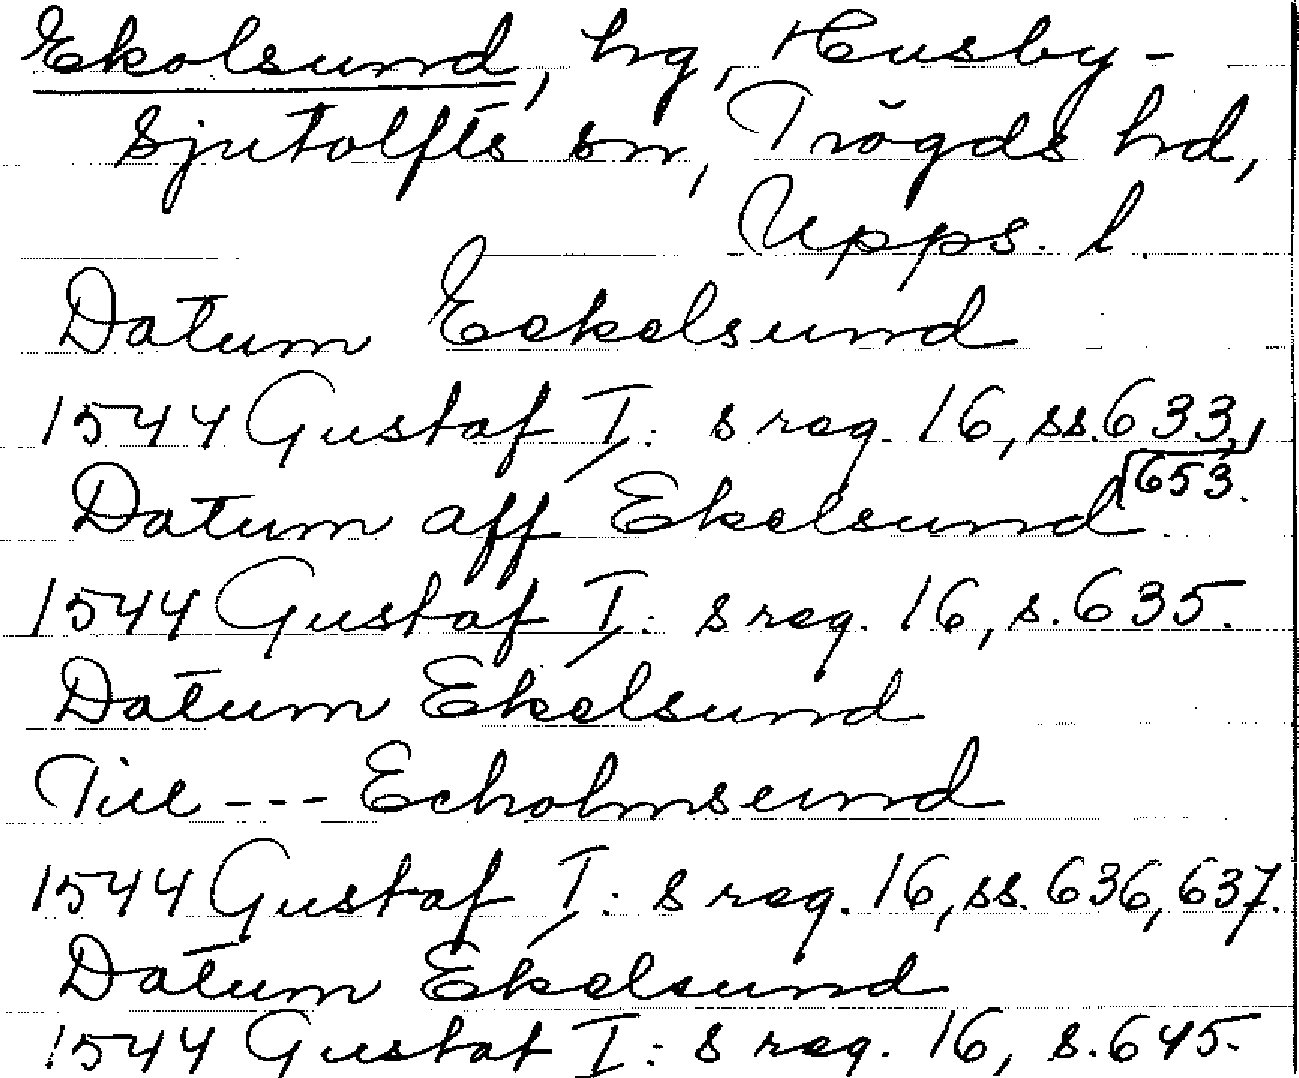 Ekolsund, hg, Husby-
Sjutolfts sn, Trögds hd,
Upps. l.
Datum Eckelsund
1544 Gustaf I:s reg. 16, ss. 633,
653.
Datum aff Ekelsund
1544 Gustaf I:s reg. 16, s. 635.
Datum Ekelsund
Till --- Echolmsund
1544 Gustaf I:s reg. 16, ss. 636, 637.
Datum Ekelsund
1544 Gustaf I:s reg. 16, s. 645.